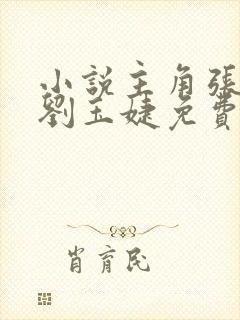 小說主角張
劉玉婕免費
肖育民